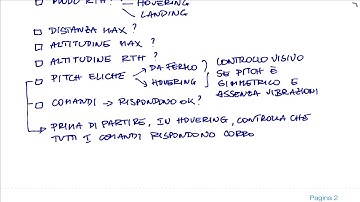 □ MODO RTH? → HOVERING
→ LANDING
□ DISTANZA MAX?
□ ALTITUDINE MAX?
□ ALTITUDINE RTH?
□ PITCH ELICHE → DA FERMO
→ HOVERING
CONTROLLO VISIVO
SE PITCH È
SIMMETRICO E
ASSENZA VIBRAZIONI
□ COMANDI → RISPONDONO OK?
→ PRIMA DI PARTIRE, IN HOVERING, CONTROLLA CHE
TUTTI I COMANDI RISPONDONO CORRO
Pagina 2